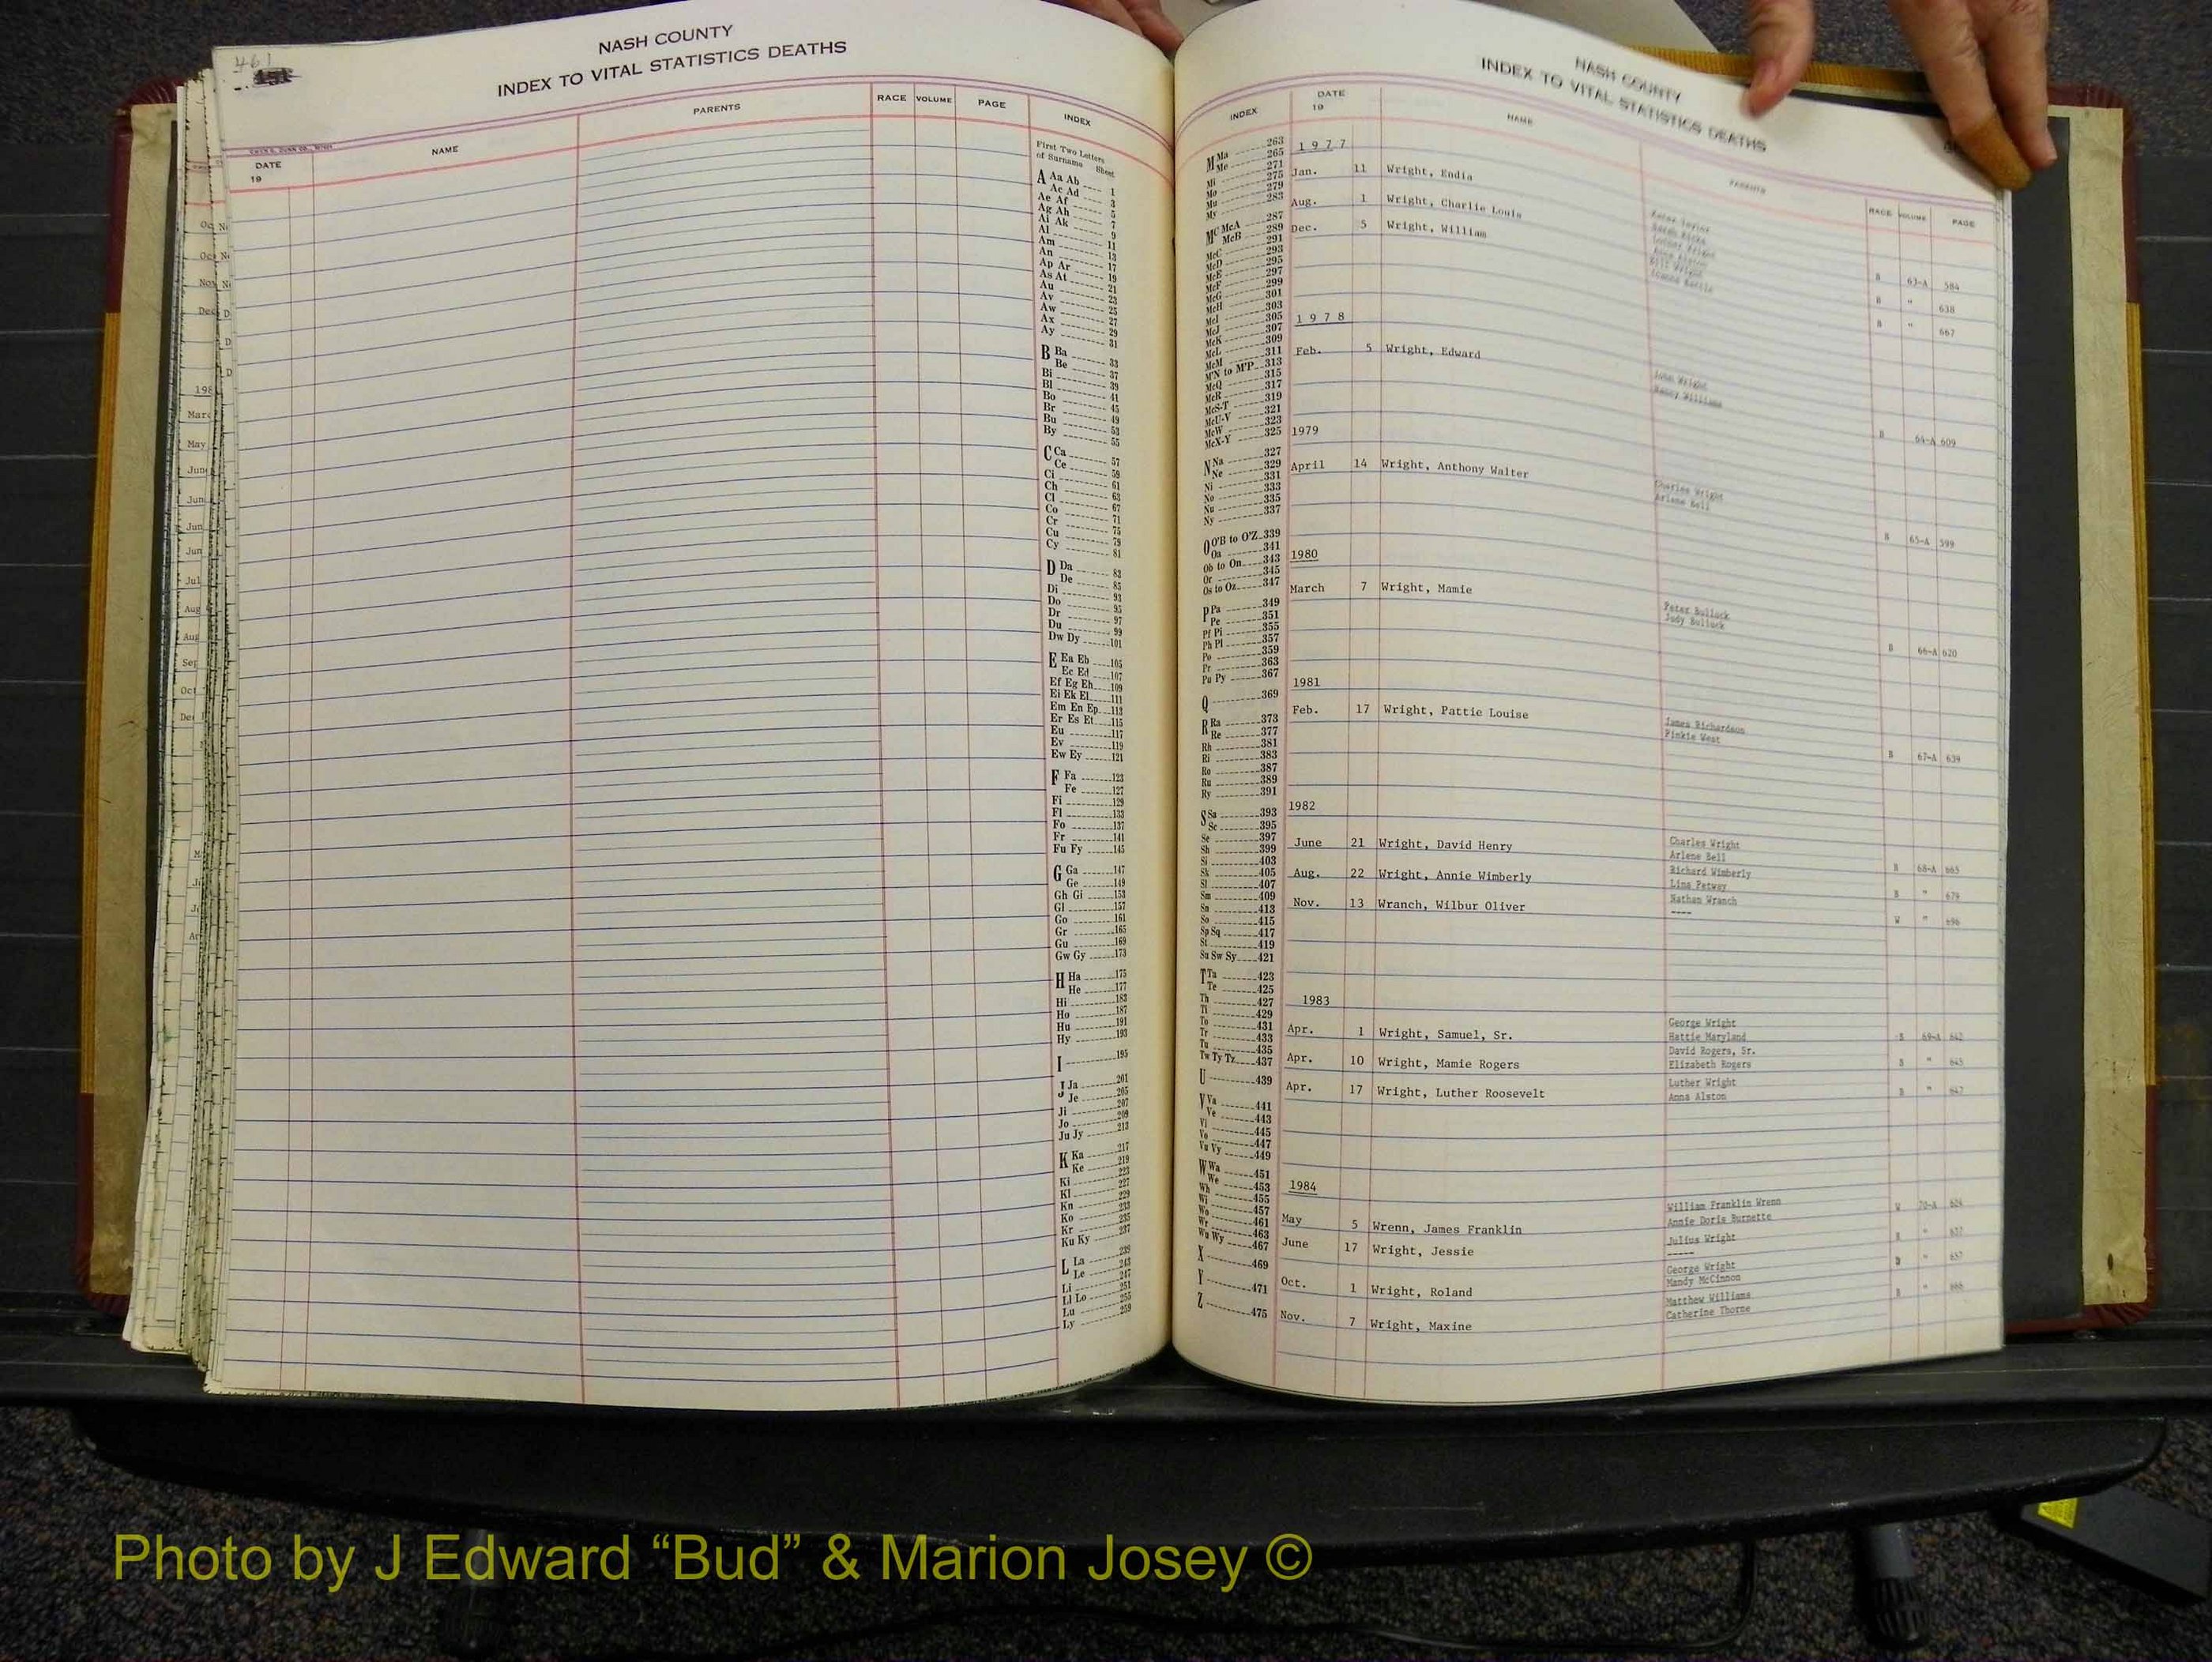 461
NASH COUNTY
INDEX TO VITAL STATISTICS DEATHS
DATE
19
NAME
PARENTS
RACE VOLUME PAGE
INDEX
First Two Letters
of Surname Sheet
A Aa Ab 1
Ac Ad 3
Ae Af 5
Ag Ah 7
Ai Ak 9
Al 11
Am 13
An 17
Ap Ar 19
As At 21
Au 23
Av 25
Aw 27
Ax 29
Ay 31
B Ba 33
Be 37
Bi 39
Bl 41
Bo 45
Br 49
Bu 53
By 55
C Ca 57
Ce 59
Ci 61
Ch 63
Cl 67
Co 71
Cr 75
Cu 79
Cy 81
D Da 83
De 85
Di 93
Do 95
Dr 97
Du 99
Dw Dy 101
E Ea Eb 105
Ec Ed 107
Ef Eg Eh 109
Ei Ek El 111
Em En Ep 113
Er Es Et 115
Eu 117
Ev 119
Ew Ey 121
F Fa 123
Fe 127
Fi 129
Fl 133
Fo 137
Fr 141
Fu Fy 145
G Ga 147
Ge 149
Gh Gi 153
Gl 157
Go 161
Gr 165
Gu 169
Gw Gy 173
H Ha 175
He 177
Hi 183
Ho 187
Hu 191
Hy 193
I 195
J Ja 201
Je 205
Ji 207
Jo 209
Ju Jy 213
K Ka 217
Ke 219
Ki 223
Kl 227
Kn 229
Ko 233
Kr 235
Ku Ky 237
L La 239
Le 243
Li 247
Ll Lo 251
Lu 255
Ly 259
NASH COUNTY
INDEX TO VITAL STATISTICS DEATHS
INDEX
DATE
19
NAME
PARENTS
RACE VOLUME PAGE
M Ma 263
Me 265
Mi 271
Mo 275
Mu 279
My 283
Mc McA 287
McB 289
McC 291
McD 293
McE 295
McF 297
McG 299
McH 301
McI 303
McJ 305
McK 307
McL 309
McM 311
M'N to M'P 313
McQ 315
McR 317
McS-T 319
McU-V 321
McW 323
McX-Y 325
N Na 327
Ne 329
Ni 331
No 333
Nu 335
Ny 337
O O'B to O'Z 339
Oa 341
Ob to On 343
Or 345
Os to Oz 347
P Pa 349
Pe 351
Pf Pi 355
Ph Pl 357
Po 359
Pr 363
Pu Py 367
Q 369
R Ra 373
Re 377
Rh 381
Ri 383
Ro 387
Ru 389
Ry 391
S Sa 393
Sc 395
Se 397
Sh 399
Si 403
Sk 405
Sl 407
Sm 409
Sn 413
So 415
Sp Sq 417
St 419
Su Sw Sy 421
T Ta 423
Te 425
Th 427
Ti 429
To 431
Tr 433
Tu 435
Tw Ty Tz 437
U 439
V Va 441
Ve 443
Vi 445
Vo 447
Vu Vy 449
W Wa 451
We 453
Wh 455
Wi 457
Wo 461
Wr 463
Wu Wy 467
X 469
Y 471
Z 475
1977
Jan. 11 Wright, Endia B 63-A 584
Aug. 1 Wright, Charlie Louis B " 638
Dec. 5 Wright, William B " 667
1978
Feb. 5 Wright, Edward
John Wright
Nancy Williams
B 64-A 609
1979
April 14 Wright, Anthony Walter
Charles Wright
Arlene Bell
B 65-A 599
1980
March 7 Wright, Mamie
Peter Bullock
Judy Bullock
B 66-A 620
1981
Feb. 17 Wright, Pattie Louise
James Richardson
Pinkie West
B 67-A 639
1982
June 21 Wright, David Henry
Charles Wright
Arlene Bell
B 68-A 665
Aug. 22 Wright, Annie Wimberly
Richard Wimberly
Lina Petway
B " 679
Nov. 13 Wranch, Wilbur Oliver
Nathan Wranch
----
W " 696
1983
Apr. 1 Wright, Samuel, Sr.
George Wright
Hattie Maryland
B 69-A 642
Apr. 10 Wright, Mamie Rogers
David Rogers, Sr.
Elizabeth Rogers
B " 645
Apr. 17 Wright, Luther Roosevelt
Luther Wright
Anna Alston
B " 647
1984
May 5 Wrenn, James Franklin
William Franklin Wrenn
Annie Doris Burnette
W 70-A
June 17 Wright, Jessie
Julius Wright
-----
Oct. 1 Wright, Roland
George Wright
Mandy McCinnon
B " 657
Nov. 7 Wright, Maxine
Matthew Williams
Catherine Thorne
B " 666
Photo by J Edward “Bud” & Marion Josey ©